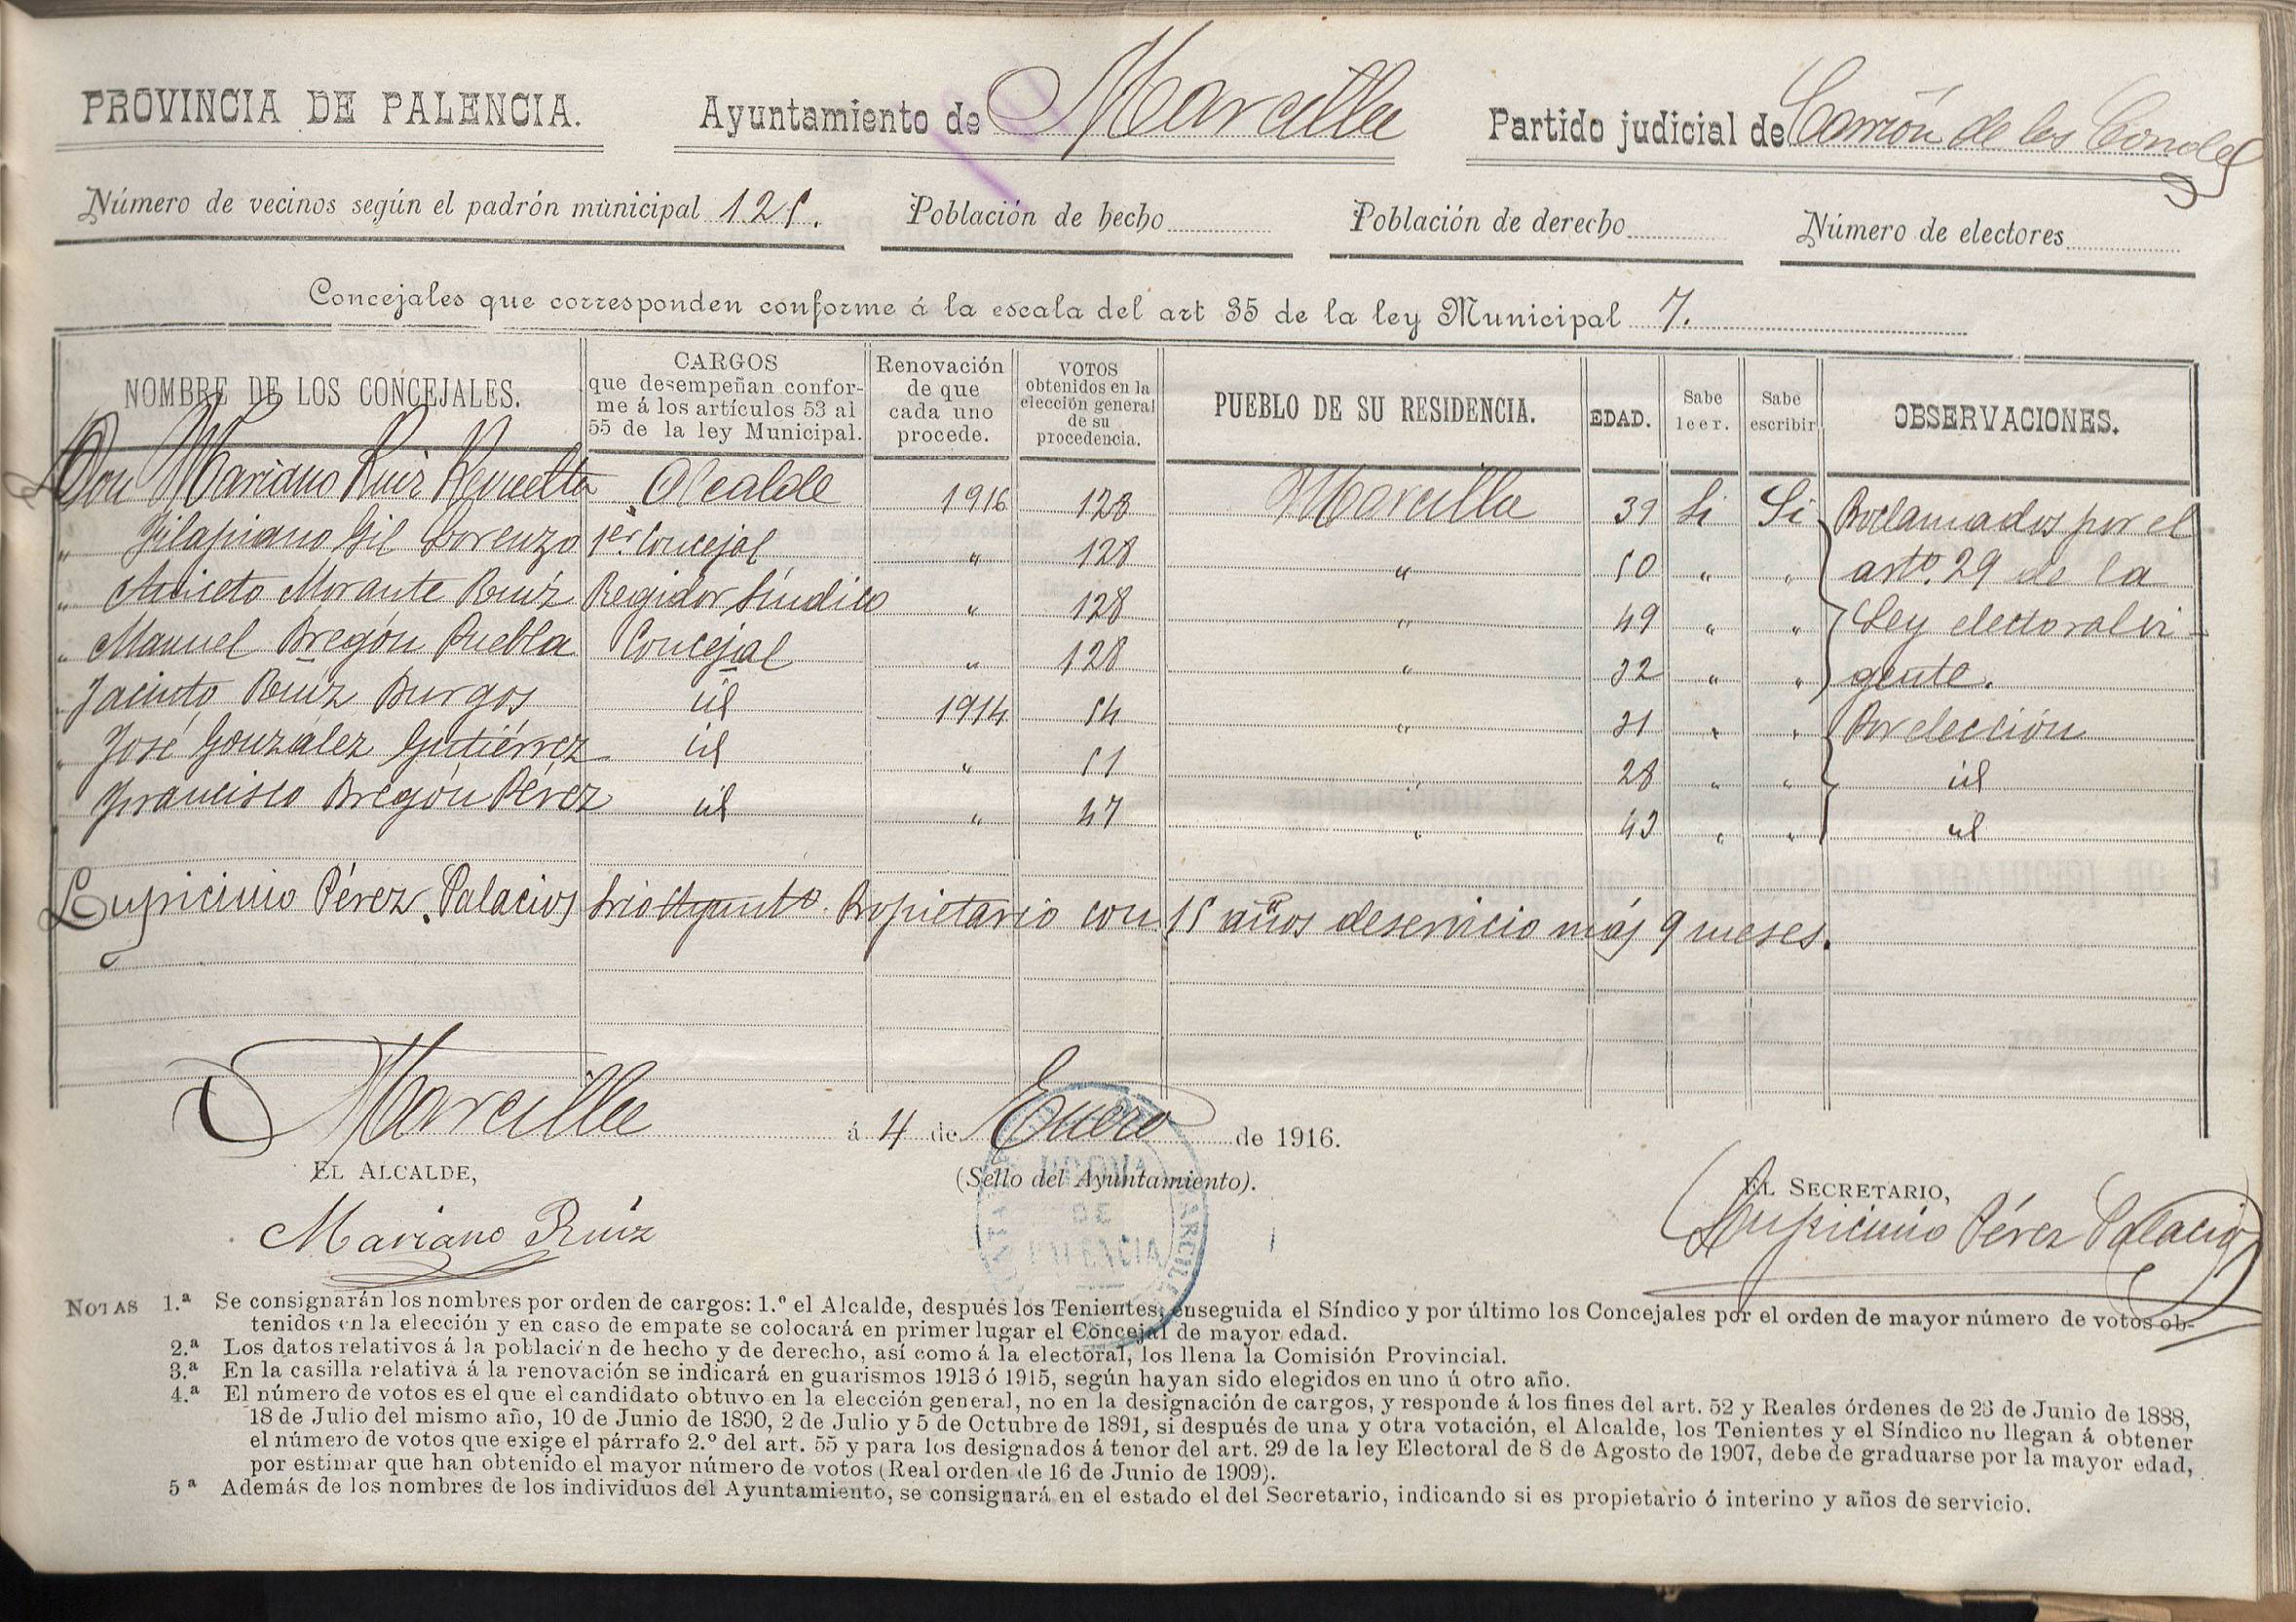 PROVINCIA DE PALENCIA. Ayuntamiento de Marcilla Partido judicial de Carrión de los Condes
Número de vecinos según el padrón municipal 125. Población de hecho Población de derecho Número de electores
Concejales que corresponden conforme á la escala del art 35 de la ley Municipal 7.
NOMBRE DE LOS CONCEJALES. CARGOS que desempeñan confor- me á los artículos 53 al 55 de la ley Municipal. Renovación de que cada uno procede. VOTOS obtenidos en la elección general de su procedencia. PUEBLO DE SU RESIDENCIA. EDAD. Sabe leer. Sabe escribir OBSERVACIONES.
Don Mariano Ruiz Revuelta Alcalde 1916 128 Marcilla 39 Si Si Proclamados por el
" Gil Lorenzo 1er Concejal " 128 " 50 " " artº. 29 de la
" Aniceto Morante Ruiz Regidor Síndico " 128 " 49 " " Ley electoral vi-
" Manuel Bregón Puebla Concejal " 128 " 32 " " gente.
" Jacinto Ruiz Burgos id 1914 54 " 31 " " Por elección
" José González Gutiérrez id " 51 " 28 " " id
" Francisco Bregón Pérez id " 47 " 43 " " id
Lupicinio Pérez Palacios Srio Ayunto. Propietario con 15 años de servicio más 9 meses.
Marcilla á 4 de Enero de 1916.
EL ALCALDE, (Sello del Ayuntamiento). EL SECRETARIO,
DE
PALENCIA
Mariano Ruiz Lupicinio Pérez Palacios
NOTAS 1.ª Se consignarán los nombres por orden de cargos: 1.º el Alcalde, después los Tenientes, enseguida el Síndico y por último los Concejales por el orden de mayor número de votos ob-
tenidos en la elección y en caso de empate se colocará en primer lugar el Concejal de mayor edad.
2.ª Los datos relativos á la población de hecho y de derecho, así como á la electoral, los llena la Comisión Provincial.
3.ª En la casilla relativa á la renovación se indicará en guarismos 1913 ó 1915, según hayan sido elegidos en uno ú otro año.
4.ª El número de votos es el que el candidato obtuvo en la elección general, no en la designación de cargos, y responde á los fines del art. 52 y Reales órdenes de 23 de Junio de 1888,
18 de Julio del mismo año, 10 de Junio de 1890, 2 de Julio y 5 de Octubre de 1891, si después de una y otra votación, el Alcalde, los Tenientes y el Síndico no llegan á obtener
el número de votos que exige el párrafo 2.º del art. 55 y para los designados á tenor del art. 29 de la ley Electoral de 8 de Agosto de 1907, debe de graduarse por la mayor edad,
por estimar que han obtenido el mayor número de votos (Real orden de 16 de Junio de 1909).
5ª Además de los nombres de los individuos del Ayuntamiento, se consignará en el estado el del Secretario, indicando si es propietario ó interino y años de servicio.